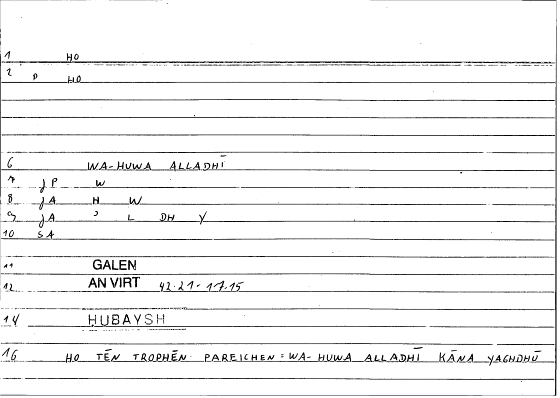 1 HO
2 D HO
6 WA-HUWA ALLADHĪ
7 JP W
8 JA H W
9 JA ʾ L DH Y
10 SA
11 GALEN
12 AN VIRT 42.21-17.15
14 HUBAYSH
16 HO TĒN TROPHĒN PAREICHEN = WA-HUWA ALLADHĪ KĀNA YAGHDHŪ